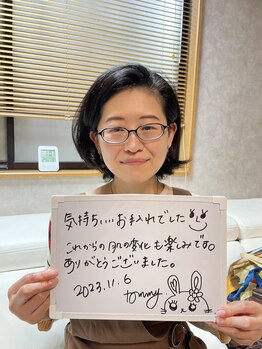 気持ちいいお手入れでした
これからの肌の変化も楽しみです。
ありがとうございました。
2023.11.6
tommy